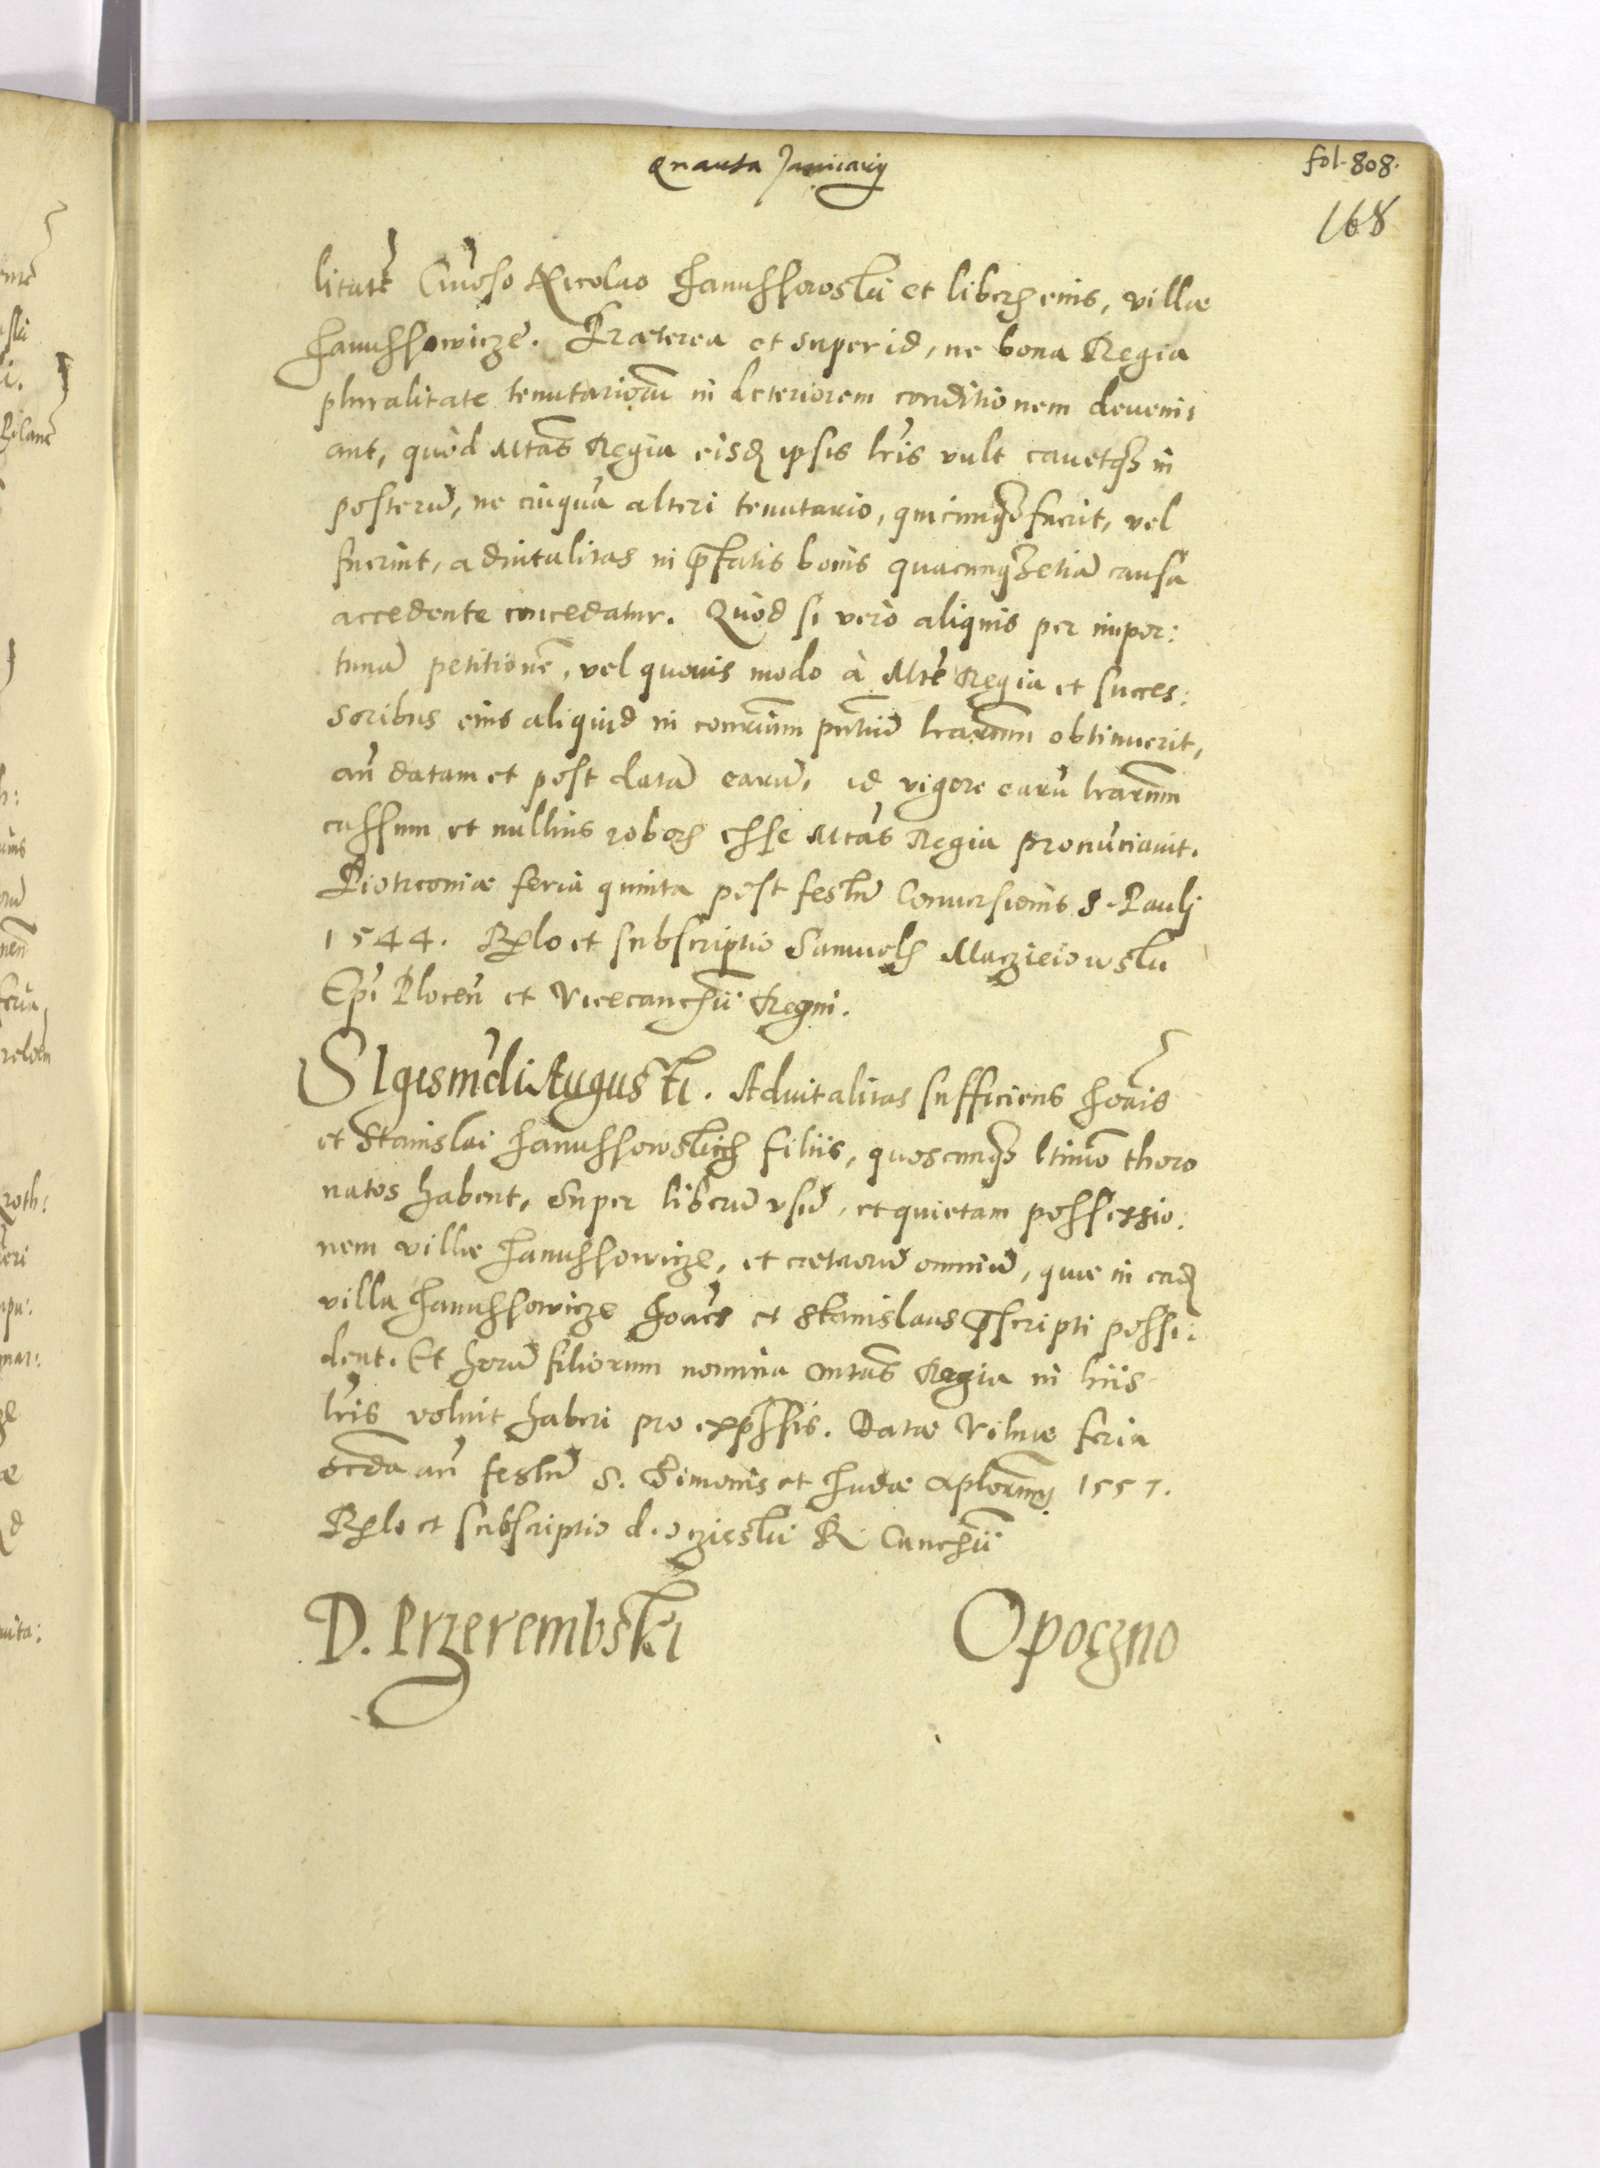 Quarta Januarij
fol. 808.
168
litatē Gnoso Nicolao Janussowski et liberis eius, villae
Janussowicze. Praeterea et super id, ne bona Regia
pluralitate tenutariorū in deteriorem conditionem deveni
ant, quòd Mtas Regia eisdē ipsis lris vult cavetq3 in
posterū, ne cuiquā alteri tenutario, quicunq3 fuerit, vel
fuerint, advitalitas in p̄fatis bonis quacunq3 etiā causa
accedente concedatur. Quòd si verò aliquis per impor:
tunā petitionē, vel quovis modo à Mte Regia et succes:
soribus eius aliquid in contrarium pntiū lrarum obtinuerit,
an̄ datam et post datā earū, id vigore earū lrarum
cassum et nullius roboris esse Mtas Regia pronūciavit.
Piotrconiae feria quinta post festū Conversionis S. Pauli
1544. Rlo et subscriptio Samuelis Macziejowski
Epi Plocen̄ et Vicecancrii Regni.
SIgismūdi Augusti. Advitalitas sufficiens Joānis
et Stanislai Janussowskich filiis, quoscunq3 ltimo thoro
natos habent, super liberū usū, et quietam possessio:
nem villae Janussowicze, et caeterorū omniū, quae in eadē
villa Janussowicze Joānes et Stanislaus p̄scripti possi:
dent. Et horū filiorum nomina Mtas Regia in hiis
lris voluit haberi pro expssis. Datae Vilnae feria
scda an̄ festū S. Simonis et Judae Aplorum 1557.
Rlo et subscriptio d. Oczieski R. Cancrii
D. Przerembski Opoczno